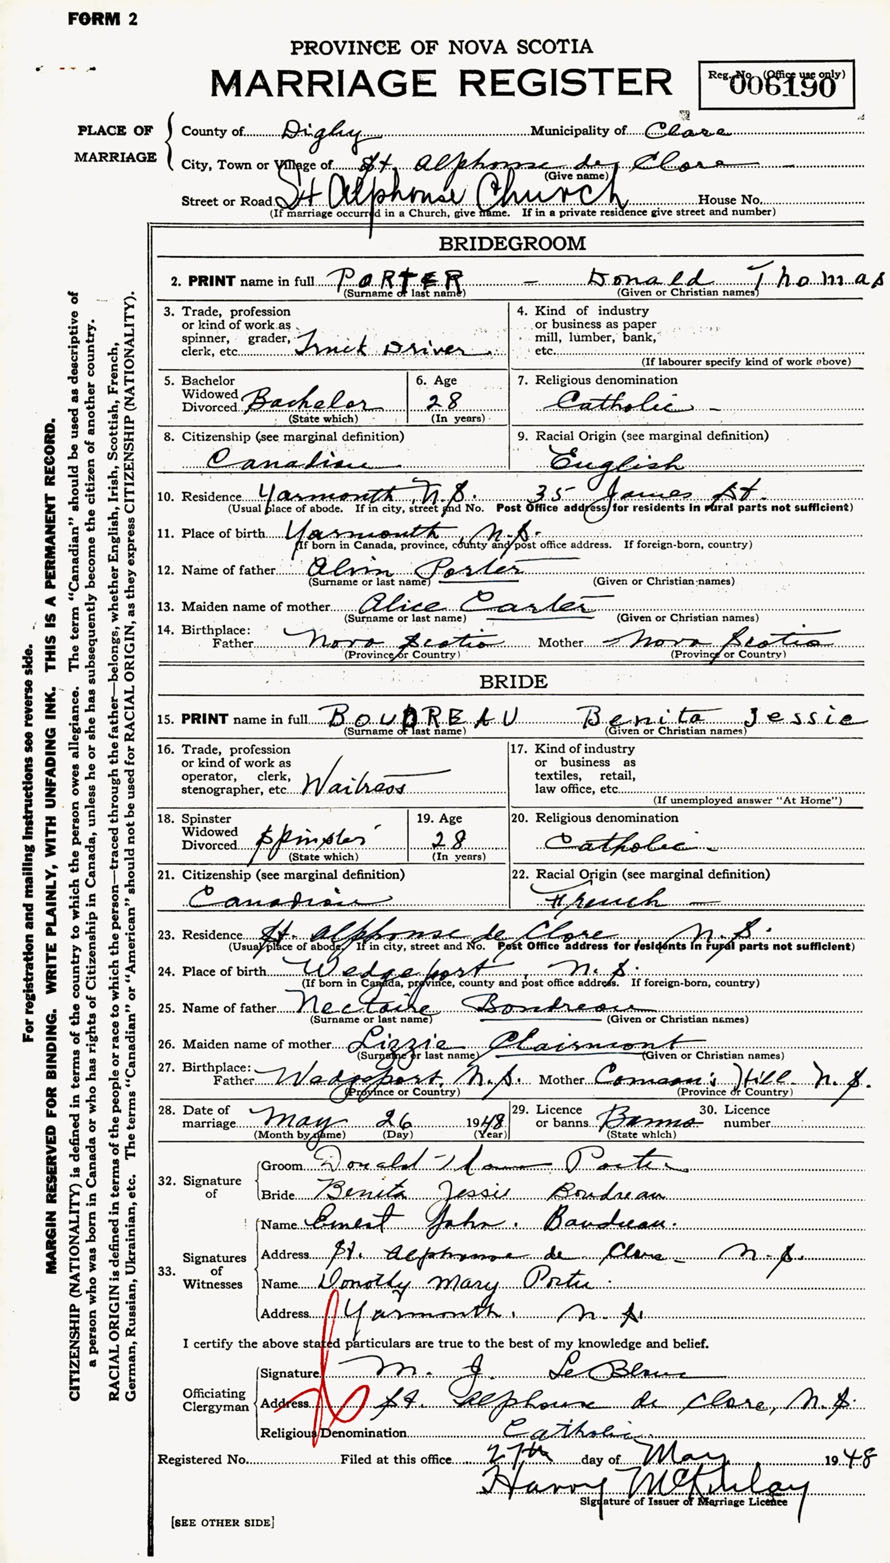 FORM 2
PROVINCE OF NOVA SCOTIA
MARRIAGE REGISTER
Reg. No. (Office use only)
006190
PLACE OF MARRIAGE
County of Digby Municipality of Clare
City, Town or Village of St. Alphonse de Clare
(Give name)
Street or Road St Alphonse Church House No.
(If marriage occurred in a Church, give name. If in a private residence give street and number)
BRIDEGROOM
2. PRINT name in full PORTER - Donald Thomas
(Surname or last name) (Given or Christian names)
3. Trade, profession
or kind of work as
spinner, grader,
clerk, etc. Truck Driver
4. Kind of industry
or business as paper
mill, lumber, bank,
etc.
(If labourer specify kind of work above)
5. Bachelor
Widowed
Divorced Bachelor
(State which)
6. Age
28
(In years)
7. Religious denomination
Catholic -
8. Citizenship (see marginal definition)
Canadian
9. Racial Origin (see marginal definition)
English
10. Residence Yarmouth, N.S. 35 James St.
(Usual place of abode. If in city, street and No. Post Office address for residents in rural parts not sufficient)
11. Place of birth Yarmouth, N.S.
(If born in Canada, province, county and post office address. If foreign-born, country)
12. Name of father Alvin Porter
(Surname or last name) (Given or Christian names)
13. Maiden name of mother Alice Carter
(Surname or last name) (Given or Christian names)
14. Birthplace:
Father Nova Scotia Mother Nova Scotia
(Province or Country) (Province or Country)
BRIDE
15. PRINT name in full BOUDREAU Benita Jessie
(Surname or last name) (Given or Christian names)
16. Trade, profession
or kind of work as
operator, clerk,
stenographer, etc. Waitress
17. Kind of industry
or business as
textiles, retail,
law office, etc.
(If unemployed answer "At Home")
18. Spinster
Widowed
Divorced Spinster
(State which)
19. Age
28
(In years)
20. Religious denomination
Catholic -
21. Citizenship (see marginal definition)
Canadian
22. Racial Origin (see marginal definition)
French -
23. Residence St. Alphonse de Clare N.S.
(Usual place of abode. If in city, street and No. Post Office address for residents in rural parts not sufficient)
24. Place of birth Wedgeport, N.S.
(If born in Canada, province, county and post office address. If foreign-born, country)
25. Name of father Nectaire Boudreau
(Surname or last name) (Given or Christian names)
26. Maiden name of mother Lizzie Clairmont
(Surname or last name) (Given or Christian names)
27. Birthplace:
Father Wedgeport, N.S. Mother Comeau's Hill N.S.
(Province or Country) (Province or Country)
28. Date of
marriage May 26 1948
(Month by name) (Day) (Year)
29. Licence
or banns Banns
(State which)
30. Licence
number
32. Signature of
Groom Donald Porter
Bride Benita Jessie Boudreau
33. Signatures of Witnesses
Name Ernest John Boudreau.
Address St. Alphonse de Clare - N.S.
Name Dorothy Mary Porter
Address Yarmouth, N.S.
I certify the above stated particulars are true to the best of my knowledge and belief.
Officiating Clergyman
Signature M. J. LeBlanc
Address St. Alphonse de Clare, N.S.
Religious Denomination Catholic
Registered No. Filed at this office 27th day of May 1948
Harry McKinlay
Signature of Issuer of Marriage Licence
[SEE OTHER SIDE]
For registration and mailing instructions see reverse side.
MARGIN RESERVED FOR BINDING. WRITE PLAINLY, WITH UNFADING INK. THIS IS A PERMANENT RECORD.
CITIZENSHIP (NATIONALITY) is defined in terms of the country to which the person owes allegiance. The term "Canadian" should be used as descriptive of
a person who was born in Canada or who has rights of Citizenship in Canada, unless he or she has subsequently become the citizen of another country.
RACIAL ORIGIN is defined in terms of the people or race to which the person—traced through the father—belongs, whether English, Irish, Scottish, French,
German, Russian, Ukrainian, etc. The terms "Canadian" or "American" should not be used for RACIAL ORIGIN, as they express CITIZENSHIP (NATIONALITY).